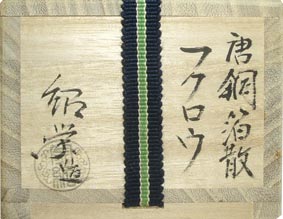 唐銅箔散
フクロウ
紹栄造